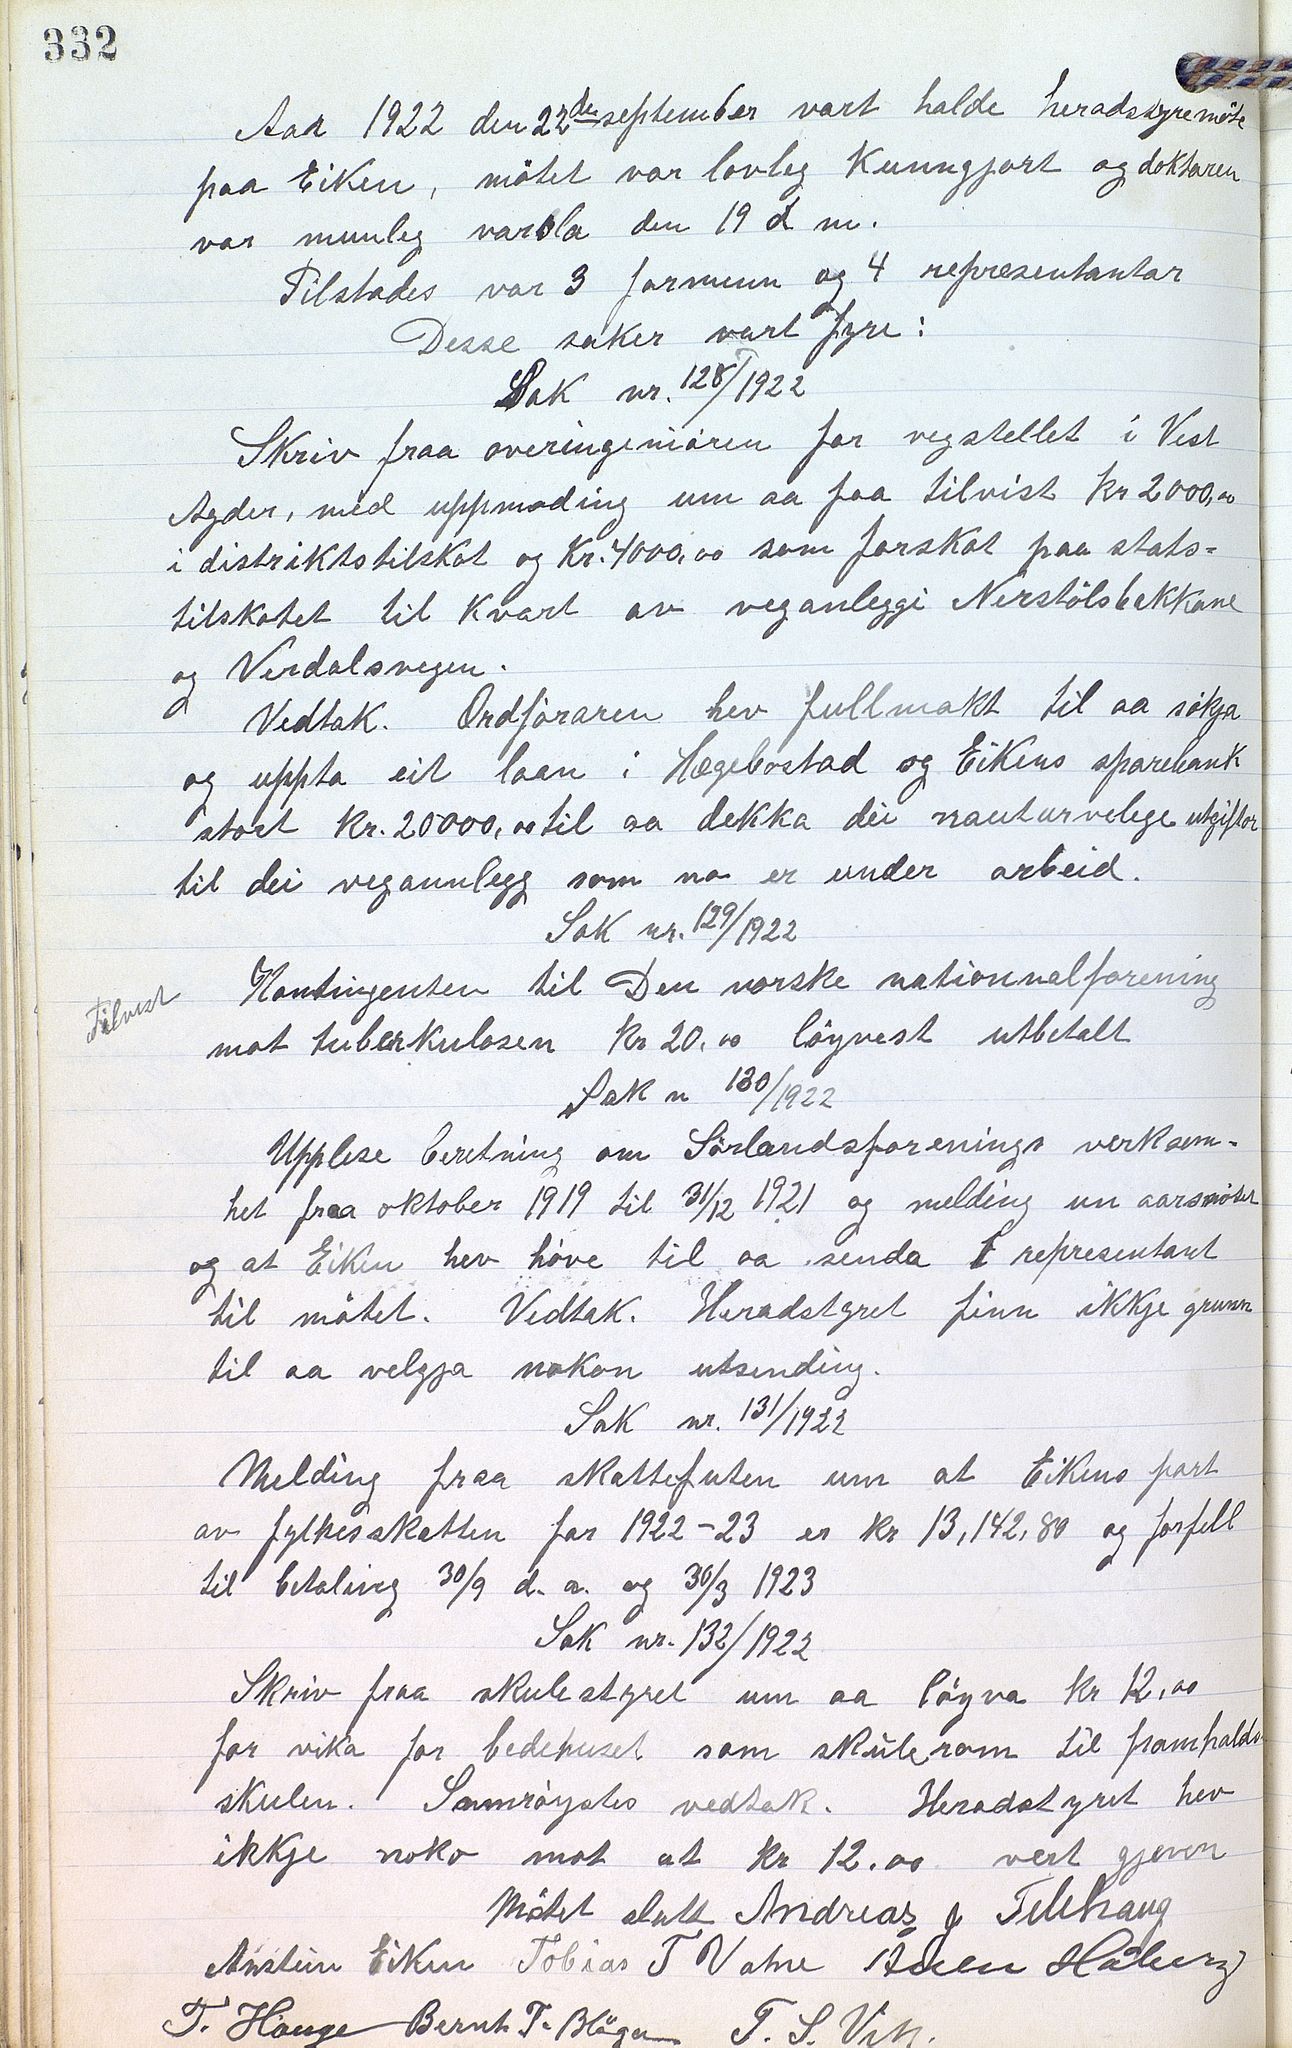 332
Aar 1922 den 22de september vart halde heradstyremöte
paa Eiken, mötet var lovleg kunngjort og doktaren
var munleg varsla den 19 d m.
Tilstades var 3 formenn og 4 representantar
Desse saker vart fyre:
Sak nr. 128/1922
Skriv fraa overingeniören for vegstellet i Vest
Agder, med uppmoding um aa faa tilvist kr 2000,00
i distriktstilskot og kr. 4000,00 som forskot paa stats-
tilskotet til kvart av veganleggi Nerstölsbakkane
og Verdalsvegen.
Vedtak. Ordföraren hev fullmakt til aa sökja
og uppta eit laan i Hægebostad og Eikens sparebank
stort kr. 20000,00 til aa dekka dei nauturvelege utgiftor
til dei vegannlegg som no er under arbeid.
Sak nr. 129/1922
Tilvist
Kontingenten til Den norske nationnalforening
mot tuberkulosen kr 20,00 löyvest utbetalt
Sak n 130/1922
Upplese beretning om Sörlandsforenings verksem-
het fraa oktober 1919 til 31/12 1921 og melding un aarsmötet
og at Eiken hev höve til aa senda 1 representant
til mötet. Vedtak. Heradstyret finn ikkje grunn
til aa velgja nokon utsending.
Sak nr. 131/1922
Melding fraa skattefuten um at Eikens part
av fylkesskatten for 1922-23 er kr 13,142,80 og forfell
til betaling 30/9 d. a. og 30/3 1923
Sak nr. 132/1922
Skriv fraa skulestyret um aa löyva kr 12,00
for vika for bedehuset som skulerom til framhalds-
skulen. Samröystes vedtak. Heradstyret hev
ikkje noko mot at kr 12.00 vert gjeven
Mötet slutt Andreas J Telhaug
Anstein Eiken Tobias T Vatne Ådeen Håberg
T. Hauge Bernt T. T. S. Vik.